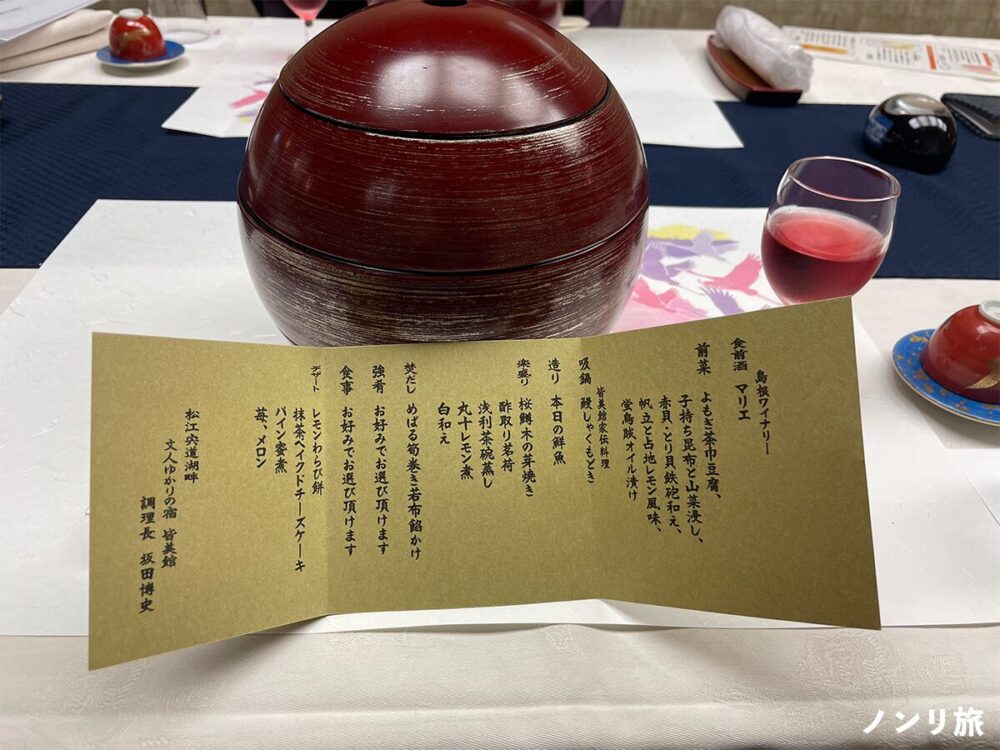 島根ワイナリー
食前酒 マリエ
前菜 よもぎ茶巾豆腐、
子持ち昆布と山菜浸し、
赤貝・とり貝鉄砲和え、
帆立と占地レモン風味、
蛍烏賊オイル漬け
皆美館家伝料理
吸鍋 鰻しゃくもどき
造り 本日の鮮魚
楽盛り 桜鱒木の芽焼き
酢取り茗荷
浅利茶碗蒸し
丸十レモン煮
白和え
焚だし めばる筍巻き若布餡かけ
強肴 お好みでお選び頂けます
食事 お好みでお選び頂けます
デザート レモンわらび餅
抹茶ベイクドチーズケーキ
パイン蜜煮
苺、メロン
松江宍道湖畔
文人ゆかりの宿 皆美館
調理長 坂田博史
ノンリ旅